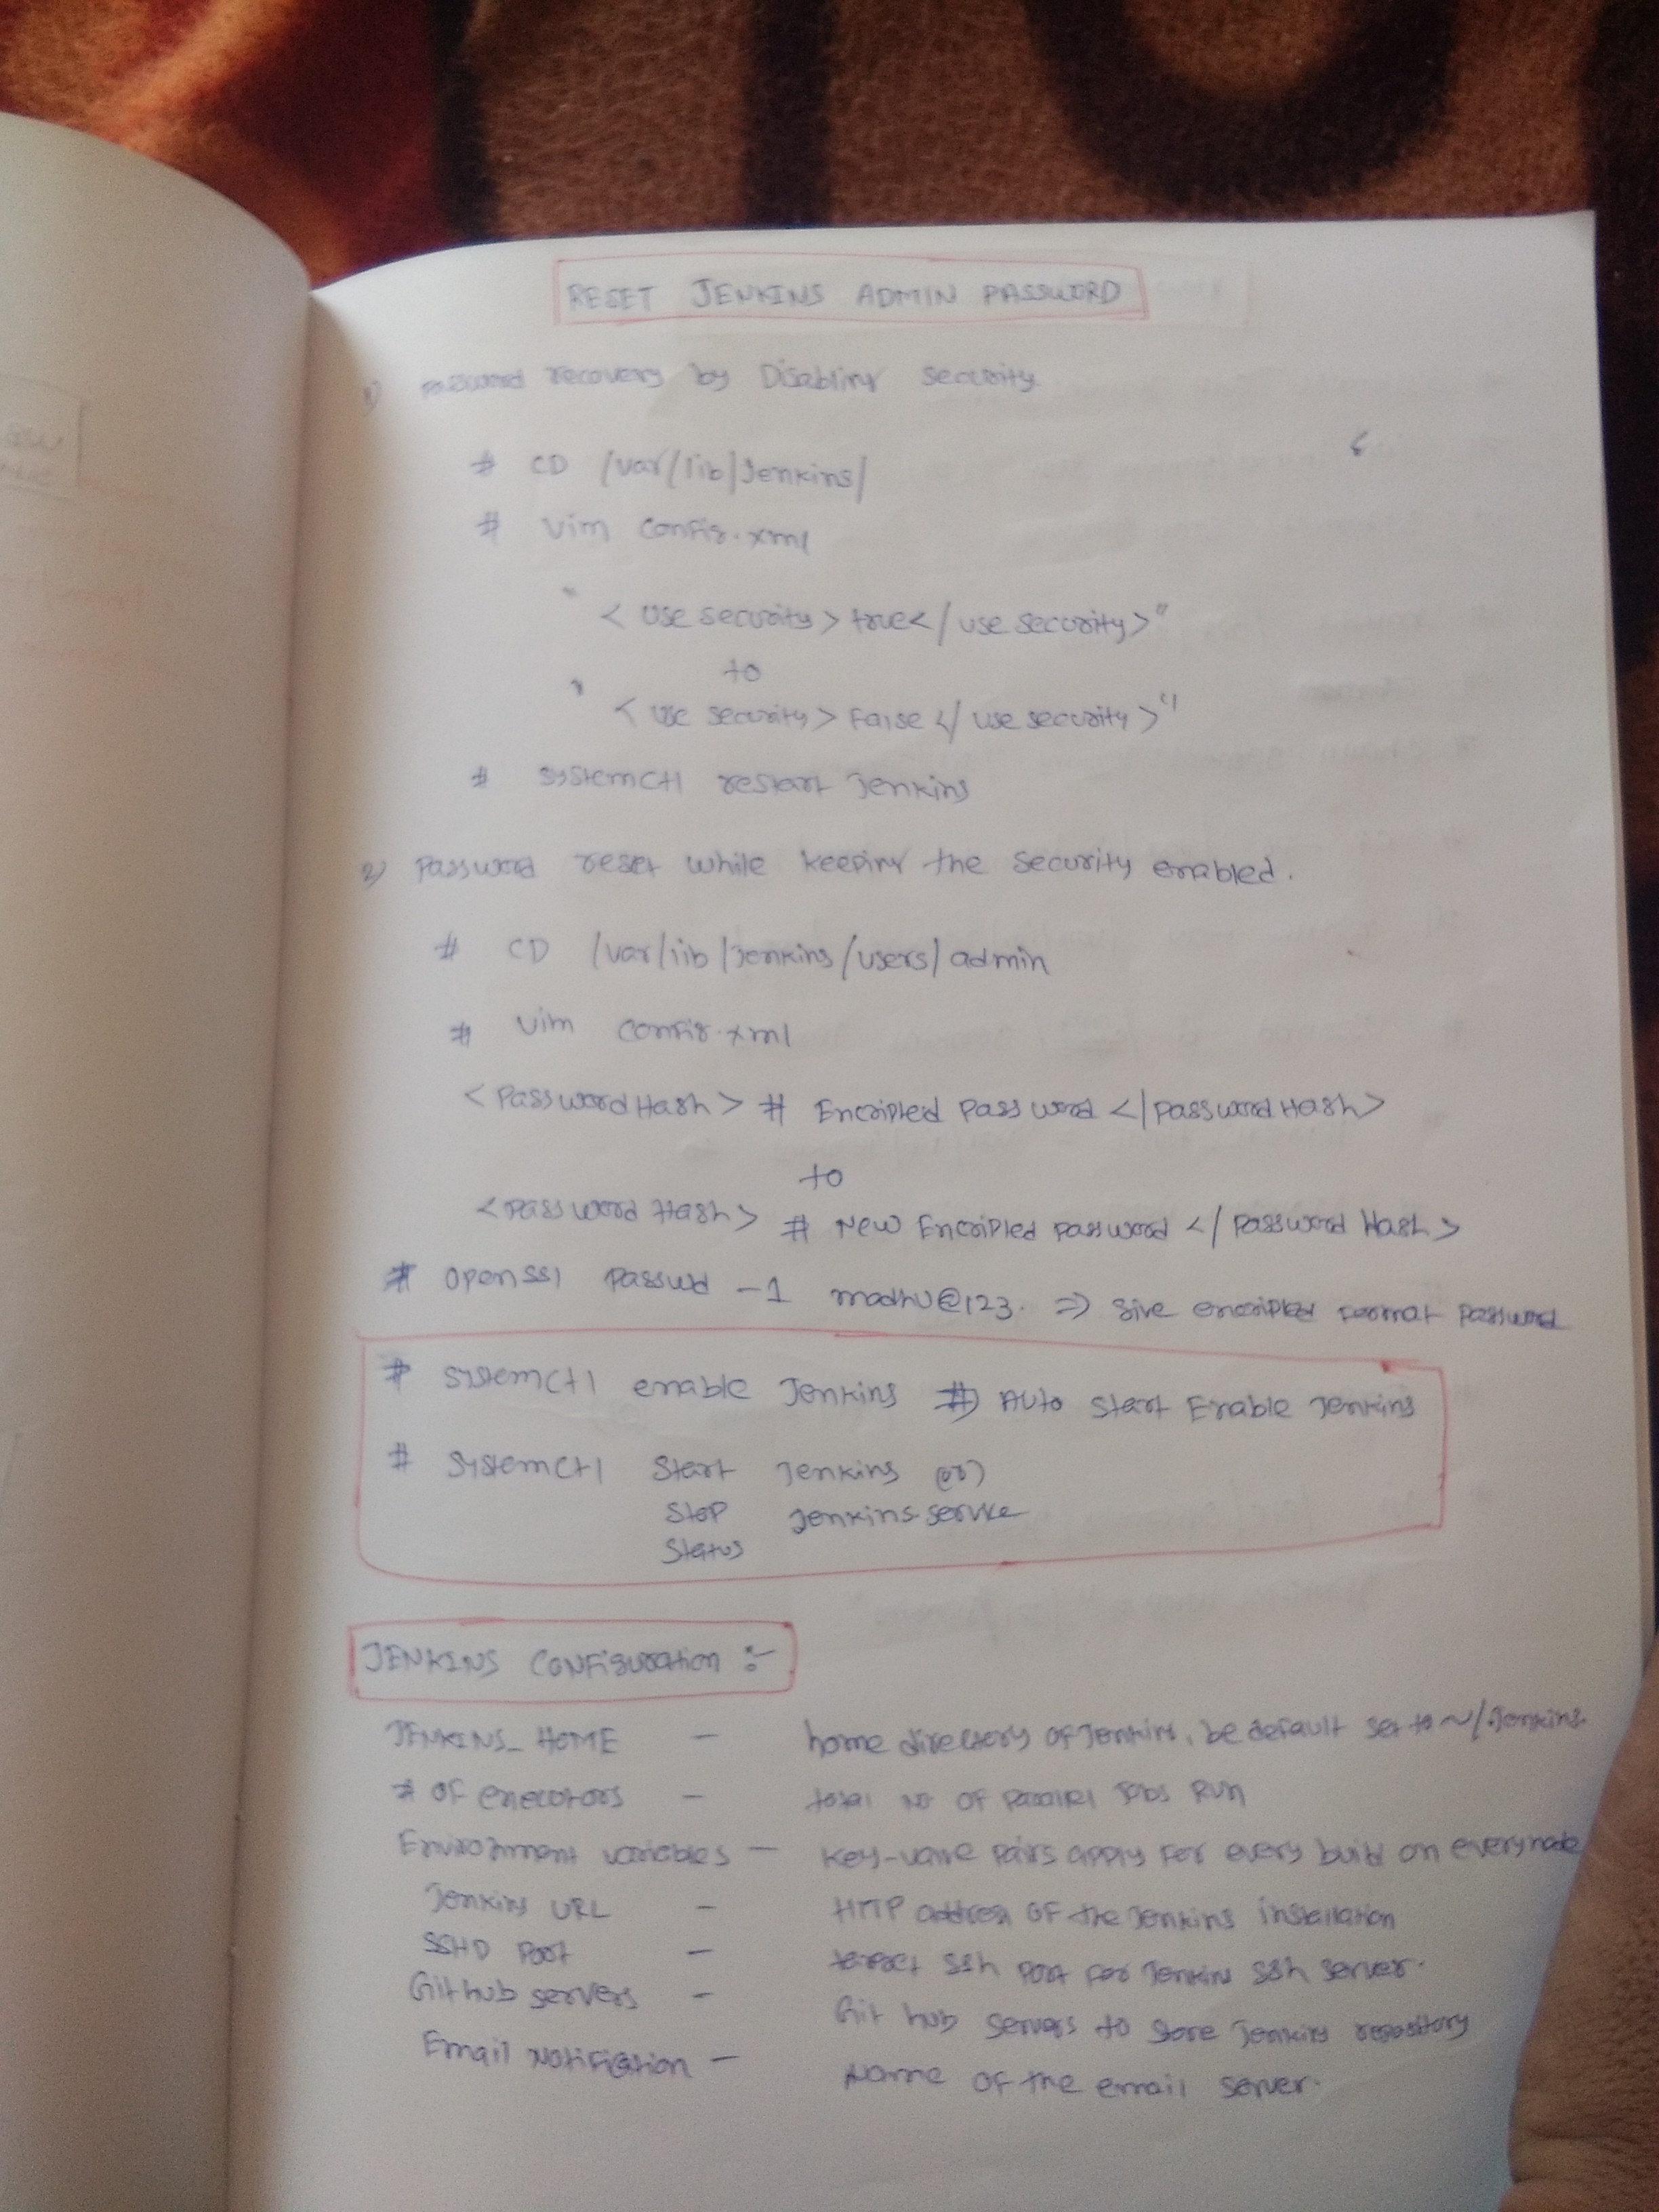 RESET JENKINS ADMIN PASSWORD
1) password recovery by Disabling security
# CD /var/lib/Jenkins/
# vim config.xml
" < use security > true </ use security > "
to
" < use security > False </ use security > "
# systemctl restart Jenkins
2) Password reset while keeping the security enabled.
# CD /var/lib/Jenkins/users/admin
# vim config.xml
< Password Hash > # Encripted Password </ password Hash >
to
< password Hash > # New Encripted password </ password Hash >
# openssl passwd -1 madhu@123. => give encripted format password
# systemctl enable Jenkins => Auto Start Enable Jenkins
# systemctl Start Jenkins (or)
Stop Jenkins.service
Status
JENKINS CONFiguration :-
JENKINS_HOME - home directory of Jenkins, be default set to ~/.Jenkins
# of executors - total no of parallel Jobs Run
Environment variables - key-value pairs apply for every build on every node
Jenkins URL - HTTP address of the Jenkins installation
SSHD Port - ssh port for Jenkins ssh server.
Git hub servers - Git hub servers to store Jenkins repository
Email Notification - Name of the email server.